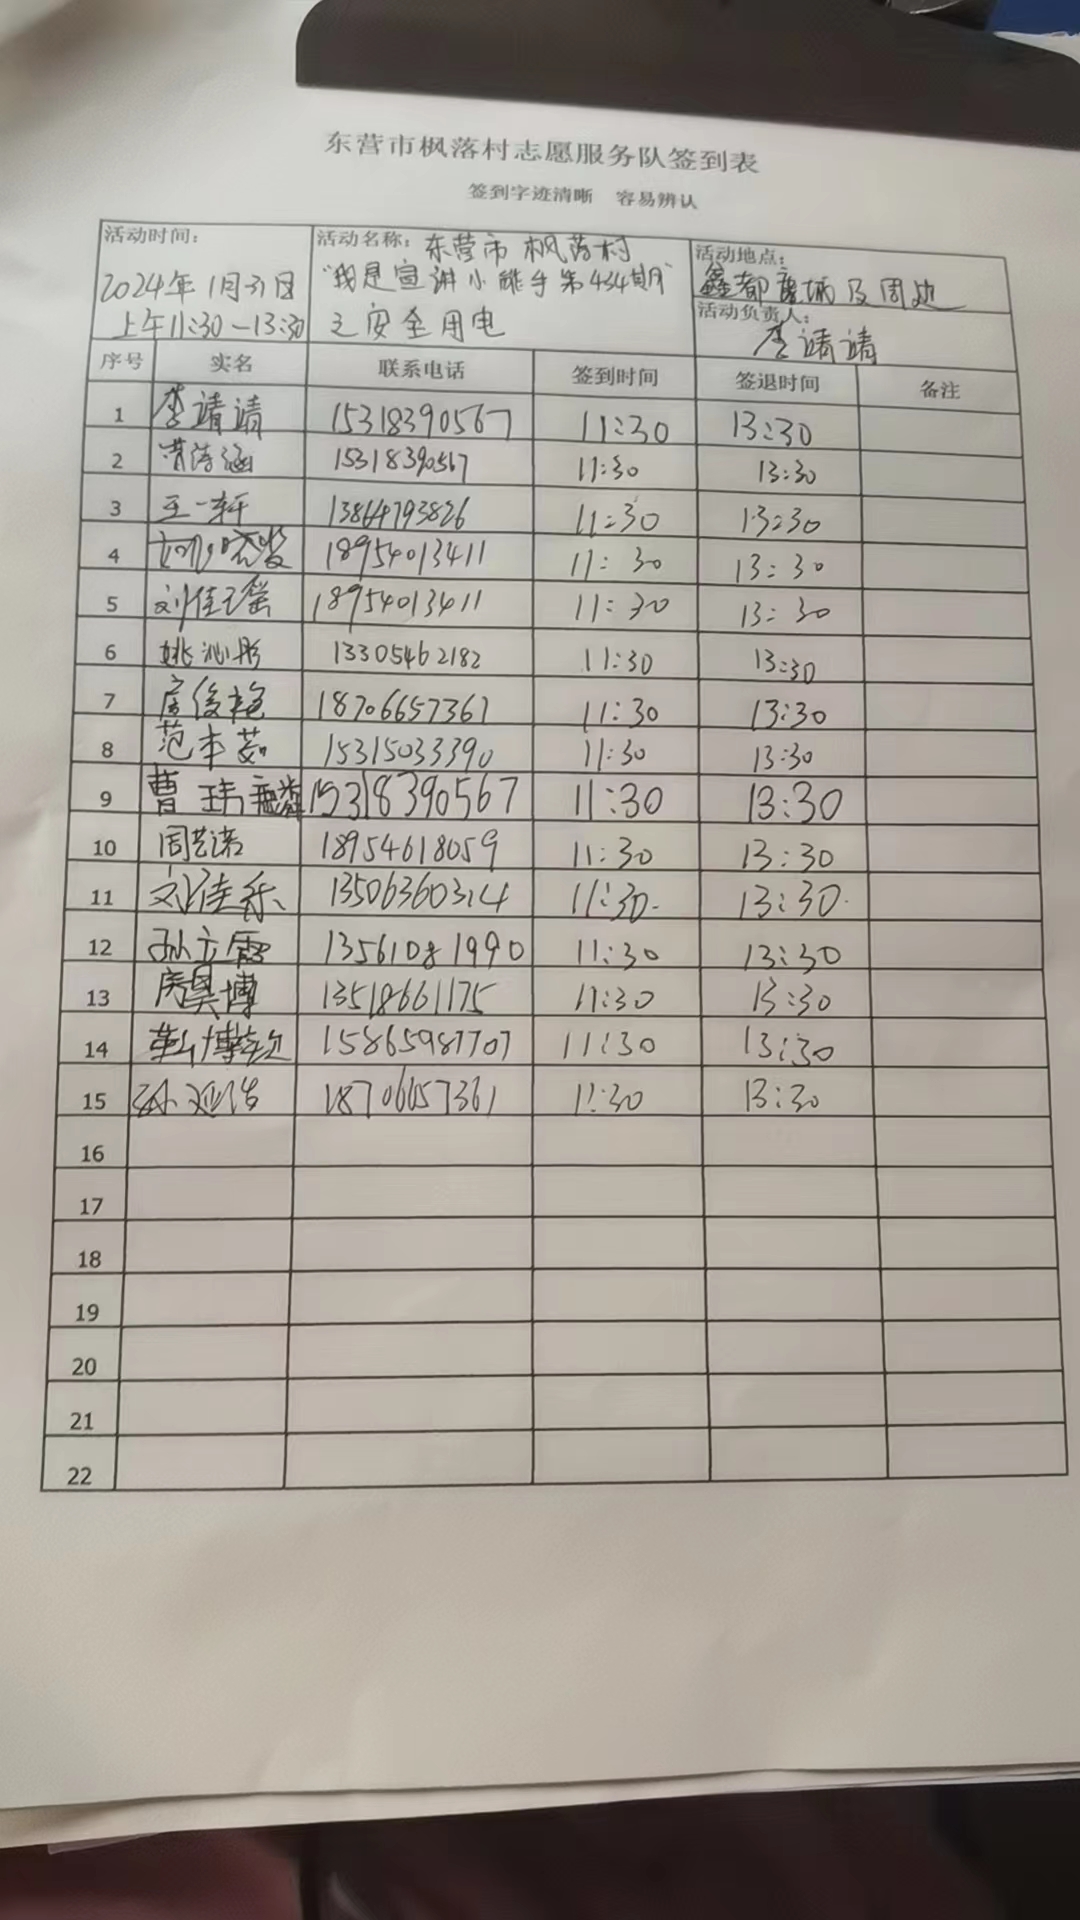 东营市枫落村志愿服务队签到表
签到字迹清晰 容易辨认
活动时间:
2024年1月31日
上午11:30—13:30
活动名称: 东营市枫落村
"我是宣讲小能手第434期"
之安全用电
活动地点:
鑫都 及周边
活动负责人:
李靖靖
序号 实名 联系电话 签到时间 签退时间 备注
1 李靖靖 15318390567 11:30 13:30
2 15318390567 11:30 13:30
3 王一轩 13864793826 11:30 13:30
4 18954013411 11:30 13:30
5 刘佳瑶 18954013411 11:30 13:30
6 姚沁彤 13305462182 11:30 13:30
7 俊艳 18706657361 11:30 13:30
8 范本茹 15315033390 11:30 13:30
9 曹玮麟 15318390567 11:30 13:30
10 周艺诺 18954618059 11:30 13:30
11 刘佳乐 13506360314 11:30 13:30
12 孙立霞 13561081990 11:30 13:30
13 房昊博 13518661175 11:30 13:30
14 15865987707 11:30 13:30
15 孙 浩 18706657361 11:30 13:30
16
17
18
19
20
21
22